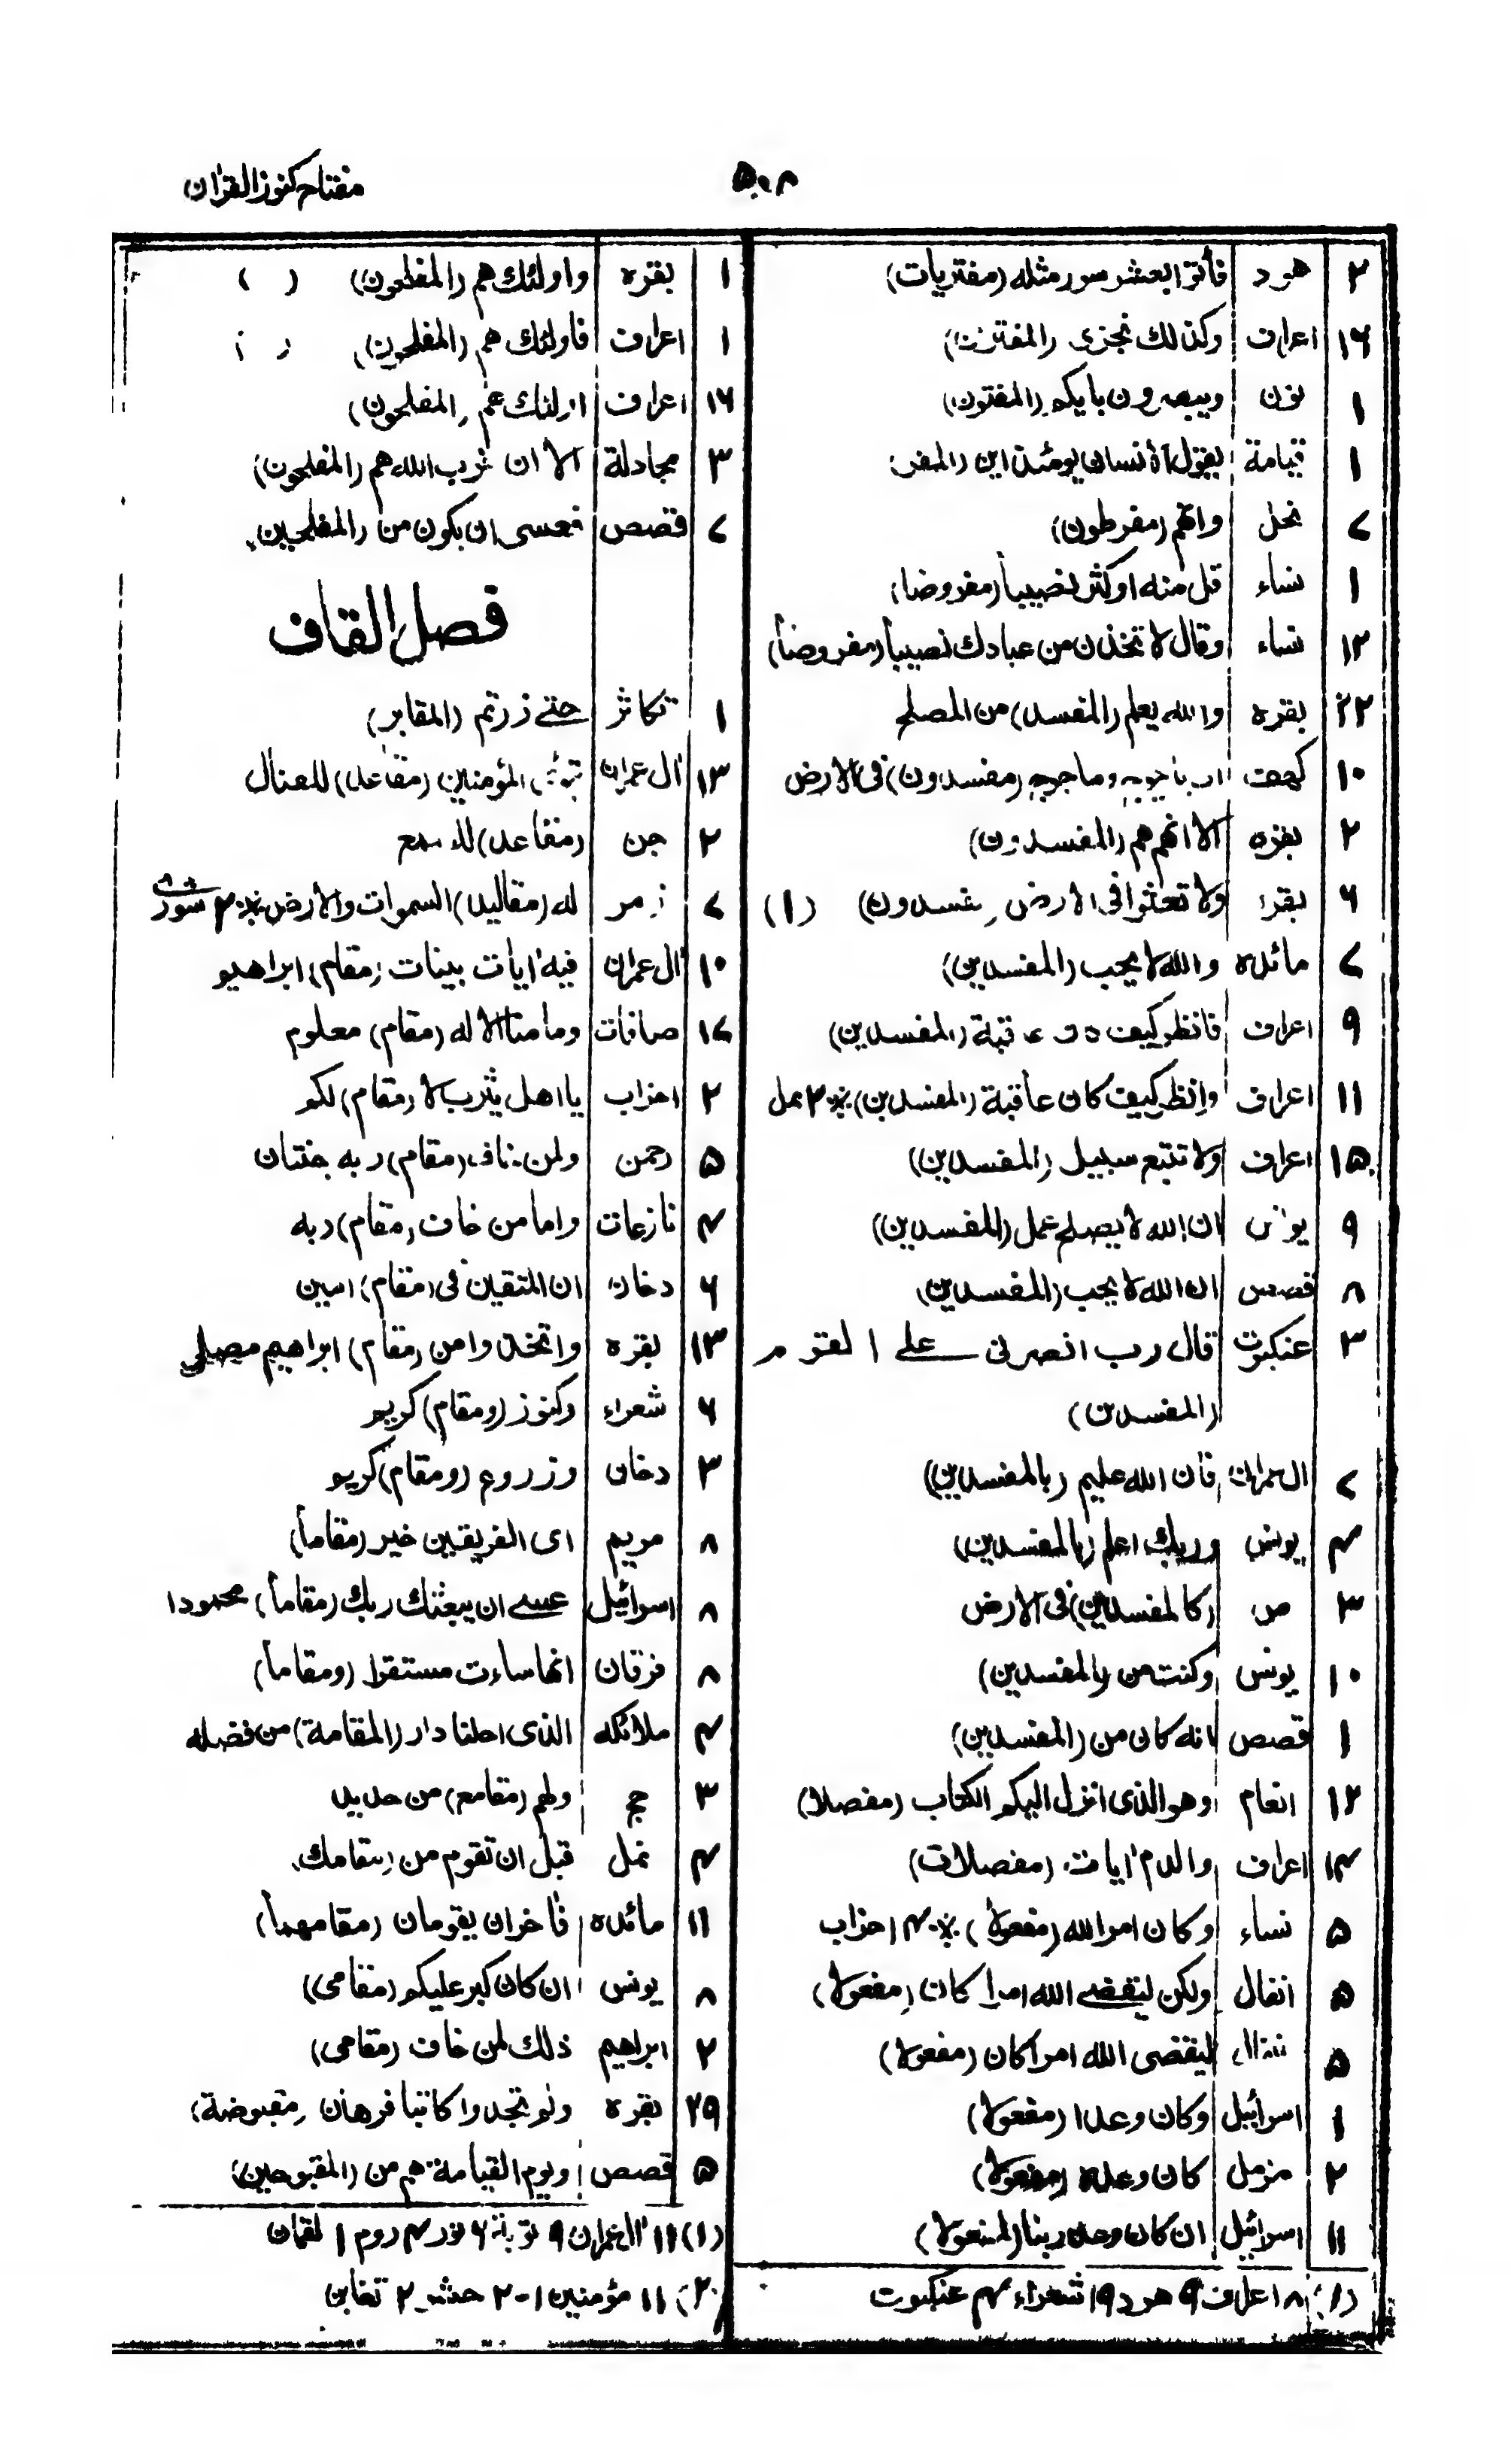 ٥٠٨
مفتاح كنوز القران
٢ هود فأتوا بعشر سور مثله (مفتريات)
١٦ اعراف وكذالك نجزى (المفترين)
١ نون ويبصرون بايكم (المفتون)
١ قيامة يقول الأنسان يومئذ اين (المفر)
٧ نحل وانهم (مفرطون)
١ نساء قل منه اوكثر نصيباً (مفروضا)
١٢ نساء وقال لاتخذن من عبادك نصيباً (مفروضاً)
٢٢ بقره والله يعلم (المفسد) من المصلح
١٠ كهف ياجوج وماجوج (مفسدون) فى الارض
٢ بقره الا انهم هم (المفسدون)
٦ بقره ولا تعثوا فى الارض (مفسدون) (١)
٧ مائده والله لا يحب (المفسدين)
٩ اعراف فانظر كيف عاقبة (المفسدين)
١١ اعراف وانظر كيف كان عاقبة (المفسدين) ※ ٢ نمل
١٥ اعراف ولا تتبع سبيل (المفسدين)
٩ يونس ان الله لا يصلح عمل (المفسدين)
٨ قصص ان الله لا يحب (المفسدين)
٣ عنكبوت قال رب انصرنى على القوم
(المفسدين)
٧ ال عمران فأن الله عليم (بالمفسدين)
٤ يونس وربك اعلم (بالمفسدين)
٣ ص (كالمفسدين) فى الارض
١٠ يونس وكنت من (المفسدين)
١ قصص انه كان من (المفسدين)
١٢ انعام وهو الذى انزل اليكم الكتاب (مفصلا)
١٤ اعراف والدم ايات (مفصلات)
٥ نساء وكان امر الله (مفعولا) ※ ٤ احزاب
٥ انفال ولكن ليقضى الله امرا كان (مفعولا)
٥ ليقضى الله امرا كان (مفعولا)
١ اسرائيل وكان وعدا (مفعولا)
٢ مزمل كان وعده (مفعولا)
١١ اسرائيل ان كان وعد ربنا (لمفعولا)
(١) ٨ اعراف ٩ هود ١٩ شعراء ٤ عنكبوت
١ بقره واولئك هم (المفلحون) ( )
١ اعراف فاولئك هم (المفلحون)
١٦ اعراف اولئك هم (المفلحون)
٣ مجادلة الا ان حزب الله هم (المفلحون)
٧ قصص فعسى ان يكون من (المفلحين)
فصل القاف
١ تكاثر حتى زرتم (المقابر)
١٣ ال عمران تبوئ المؤمنين (مقاعد) للقتال
٢ جن (مقاعد) للسمع
٧ زمر له (مقاليد) السموات والارض ※ ٢ شورى
١٠ ال عمران فيه ايات بينات (مقام) ابراهيم
١٧ صافات وما منا الا له (مقام) معلوم
٢ احزاب يا اهل يثرب لا (مقام) لكم
٥ رحمن ولمن خاف (مقام) ربه جنتان
٤ نازعات واما من خاف (مقام) ربه
٦ دخان ان المتقين فى (مقام) امين
١٣ بقره واتخذوا من (مقام) ابراهيم مصلى
٦ شعراء وكنوز (ومقام) كريم
٣ دخان وزروع (ومقام) كريم
٨ مريم اى الفريقين خير (مقاماً)
٨ اسرائيل عسى ان يبعثك ربك (مقاماً) محمودا
٨ فرقان انها ساءت مستقرا (ومقاماً)
٤ ملائكه الذى احلنا دار (المقامة) من فضله
٣ حج ولهم (مقامع) من حديد
٤ نمل قبل ان تقوم من (مقامك)
١١ مائده فأخران يقومان (مقامهما)
٨ يونس ان كان كبر عليكم (مقامى)
٢ ابراهيم ذلك لمن خاف (مقامى)
٢٩ بقره ولم تجدوا كاتبا فرهان (مقبوضة)
٥ قصص ويوم القيامة هم من (المقبوحين)
(١) ١١ ال عمران ٩ توبة ٦ نور ٤ روم ١ لقمان
(٢) ١١ مؤمنين ١-٢ حشر ٢ تغابن